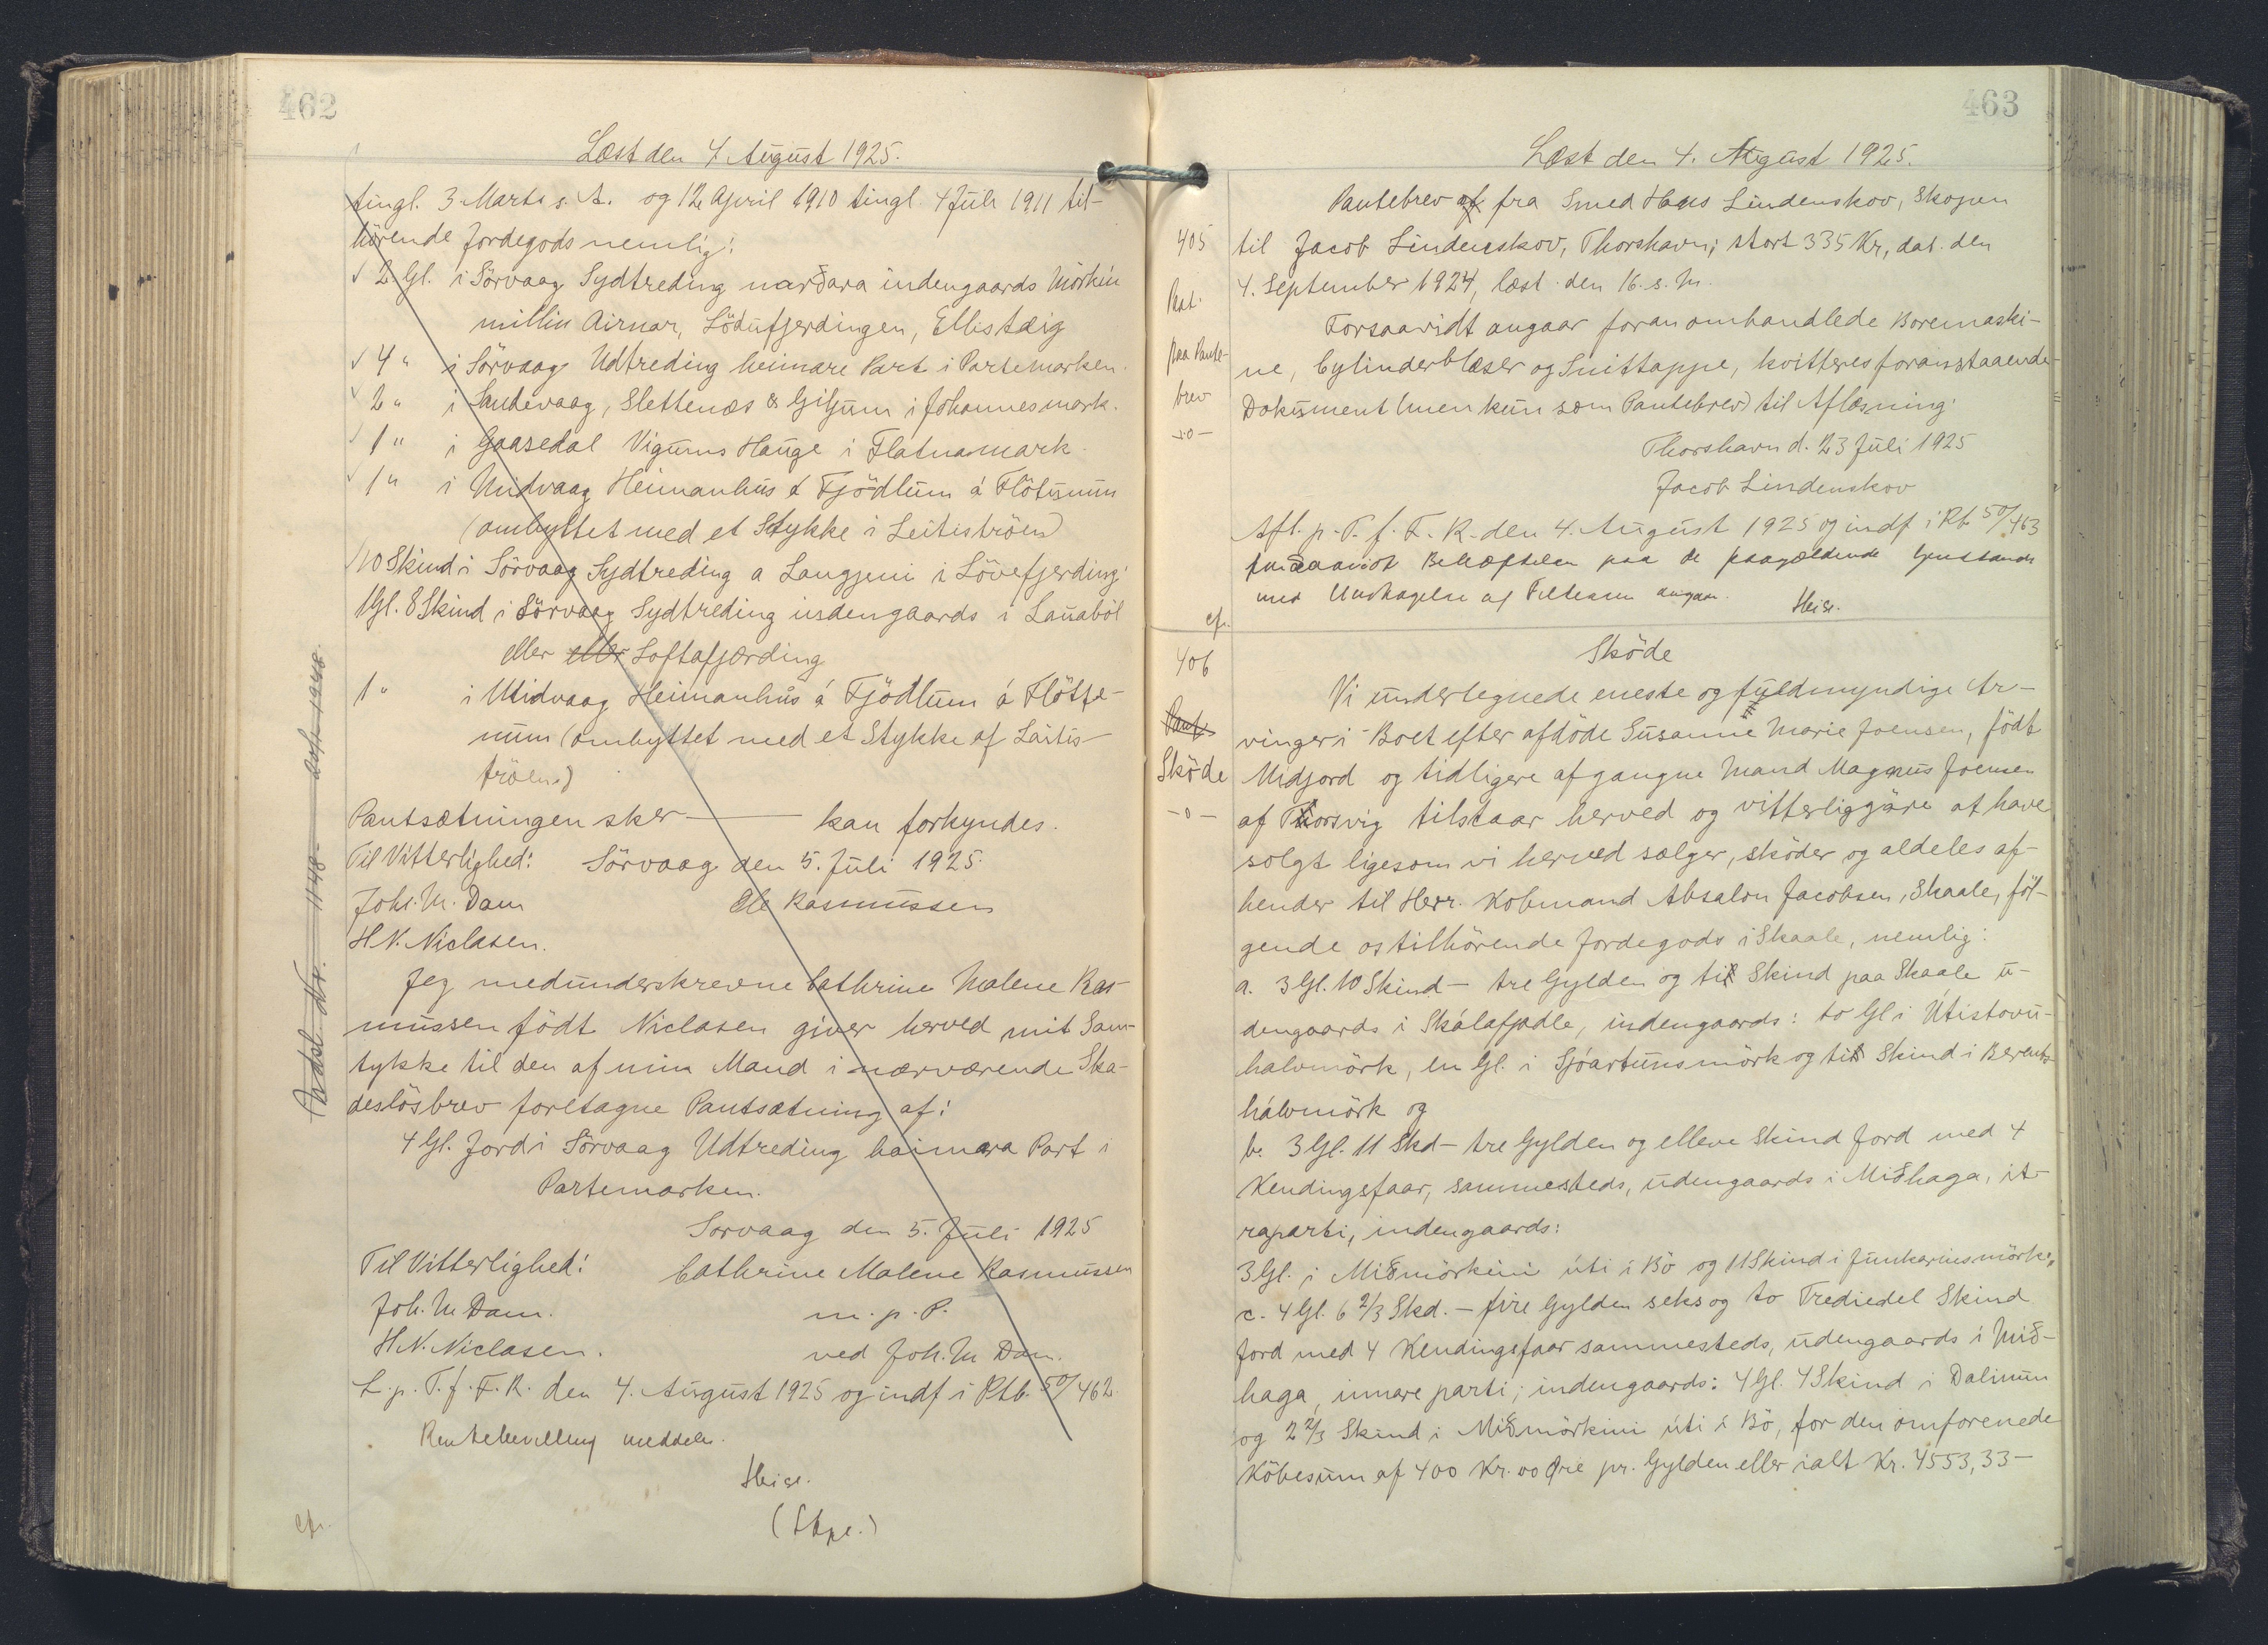 462
Læst den 4. August 1925.
tingl. 3 Marts s. A. og 12 April 1910 tingl. 4 Juli 1911 til-
hörende Jordegods nemlig:
2 Gl. i Sörvaag Sydtreding narðara indengaards Mörkin
millin Airnar, Lödufjerdingen, Ellistæig
4 " i Sörvaag Udtreding heimare Part i Partemarken.
2 " i Sandevaag, Slettenæs & Giljum i Johannesmark.
1 " i Gaasedal Vigums Hauge i Flatnamark
1 " i Midvaag Heimanhus á Fjödlum á Flötunum
(ombyttet med et Stykke i Leitiströen)
10 Skind i Sörvaag Sydtreding a Langjeni i Lövefjerding
1 Gl. 8 Skind i Sörvaag Sydtreding indengaards i Lanaból
eller eller Loftafjærding
1 " i Midvaag Heimanhus á Fjödlum á Flötje-
num (ombyttet med et Stykke af Laitis-
tröen)
Pantsætningen sker — kan forkyndes.
Til Vitterlighed: Sörvaag den 5. Juli 1925.
Joh. M. Dam Ole Rasmussen
H.N. Niclasen.
Jeg medunderskrevne Cathrine Malene Ras-
mussen födt Niclasen giver herved mit Sam-
tykke til den af min Mand i nærværende Ska-
deslösbrev foretagne Pantsætning af:
4 Gl. Jord i Sörvaag Udtreding haimara Part i
Partemarken.
Sorvaag den 5. Juli 1925
Til Vitterlighed: Cathrine Malene Rasmussen
Joh. M Dam. m. p. P.
H.N. Niclasen. ved Joh. M Dam.
L. p. T. f. F. R. den 4. August 1925 og indf i Ptb. 50/462
Rentebevilling meddeles.
Heise.
cfr.
463
Læst den 4. August 1925.
405
Kvt.
paa Pante-
brev
-o-
Pantebrev af fra Smed Hans Lindenskov, Skopun
til Jacob Lindenskov, Thorshavn; stort 335 Kr, dat. den
4. September 1924, læst den 16. s. M.
Forsaavidt angaar foran omhandlede Boremaski-
ne, Cylinderblæser og Snittappe, kvitteres foranstaaende
Dokument (men kun som Pantebrev) til Aflæsning.
Thorshavn d. 23 Juli 1925
Jacob Lindenskov
Afl. p. T. f. F. R. den 4. August 1925 og indf i Ptb 50/463
forsaavidt Behæftelsen paa de paagældende Genstande
med Undtagelse af angaar.
Heise.
cfr.
406
Pant
Sköde
-o-
Sköde
Vi undertegnede eneste og fuldmyndige Ar-
vinger i Boet efter afdöde Susanne Marie Joensen, födt
Midjord og tidligere afgangne Mand Magnus Joensen
af Thorsvig tilstaar herved og vitterliggöre at have
solgt ligesom vi herved sælger, sköder og aldeles af-
hender til Herr. Kobmand Absalon Jacobsen, Skaale, föl-
gende os tilhörende Jordegods i Skaale, nemlig:
a. 3 Gl. 10 Skind - tre Gylden og ti Skind paa Skaale u-
dengaards i Skálafjødle, indengaards: to Gl i Útistovu-
halvmörk, en Gl. i Sjóartunsmörk og ti Skind i Berents
hálvmörk og
b. 3 Gl. 11 Skd - tre Gylden og elleve Skind Jord med 4
Kendingsfaar, sammesteds, udengaards i Miðhaga, it-
raparti, indengaards:
3 Gl. i Miðmörkini úti í Bö og 11 Skind i Junkarinsmörk,
c. 4 Gl. 6 2/3 Skd. - fire Gylden seks og to Trediedel Skind
Jord med 4 Kendingsfaar sammesteds, udengaards i Mið-
haga, innare parti; indengaards: 4 Gl. 4 Skind i Dalinum
og 2 2/3 Skind i Miðmörkini úti í Bö, for den omforenede
Köbesum af 400 Kr. 00 Øre pr. Gylden eller ialt Kr. 4553,33-